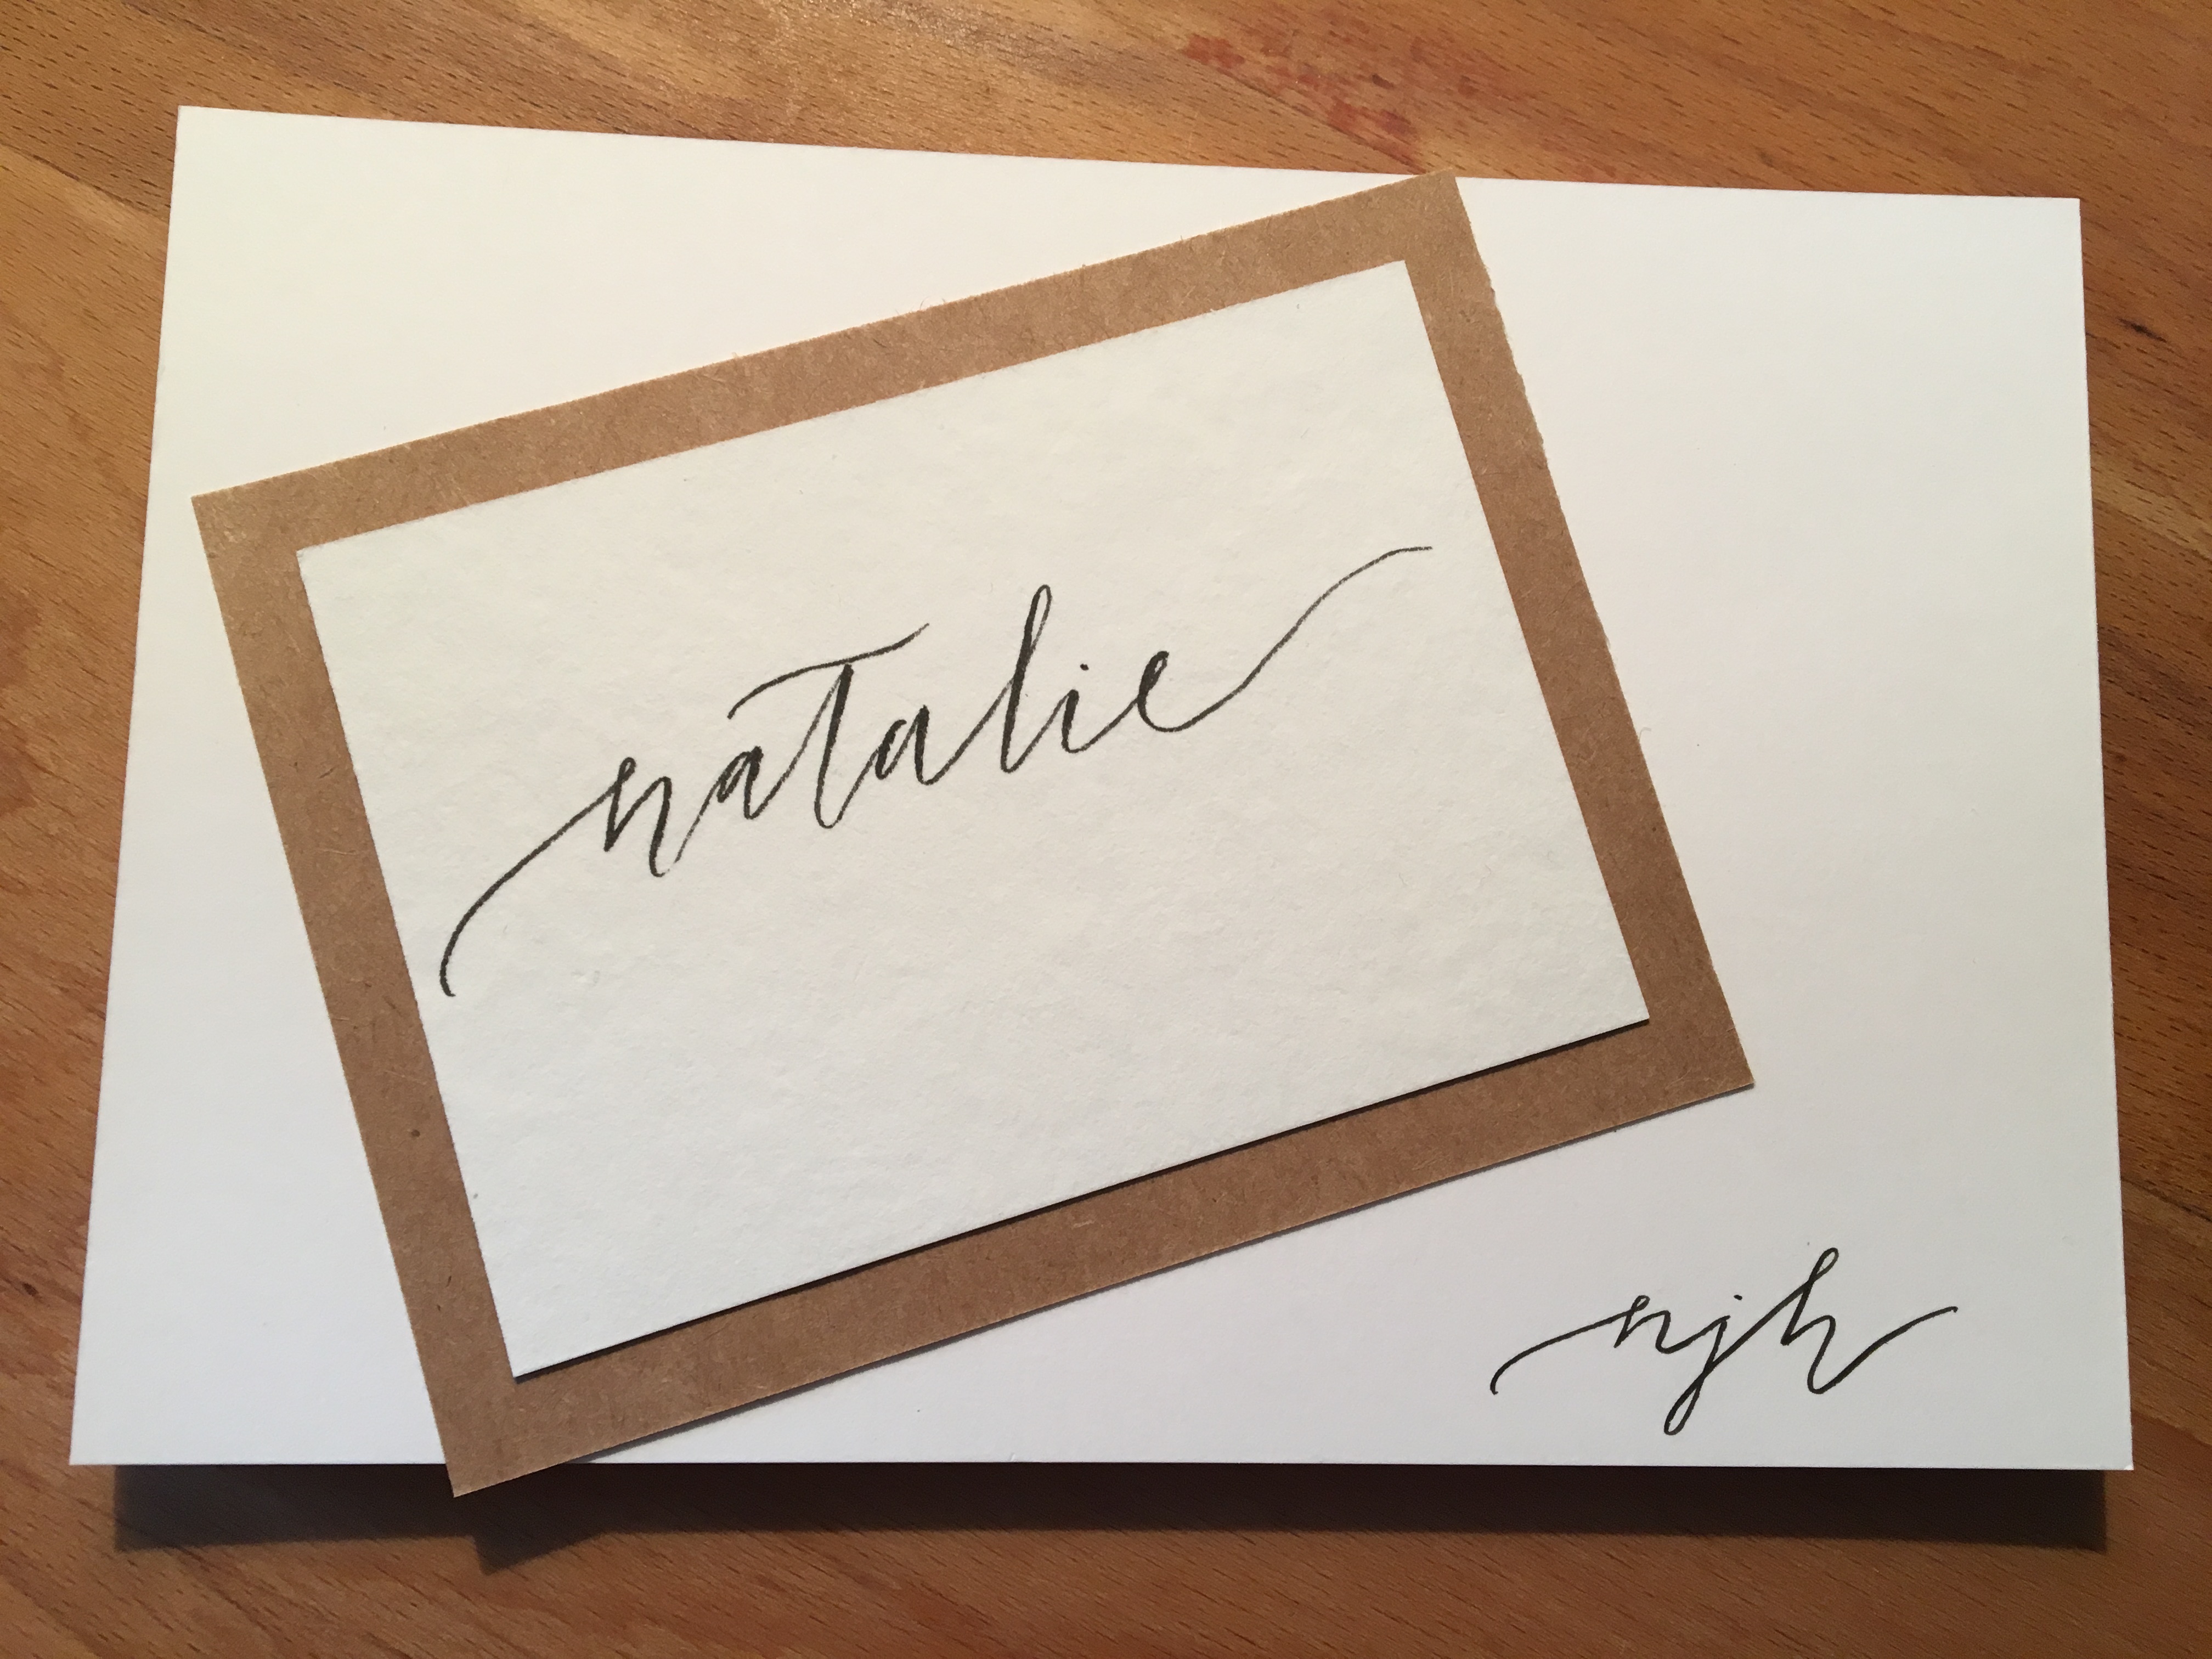 natalie
njh